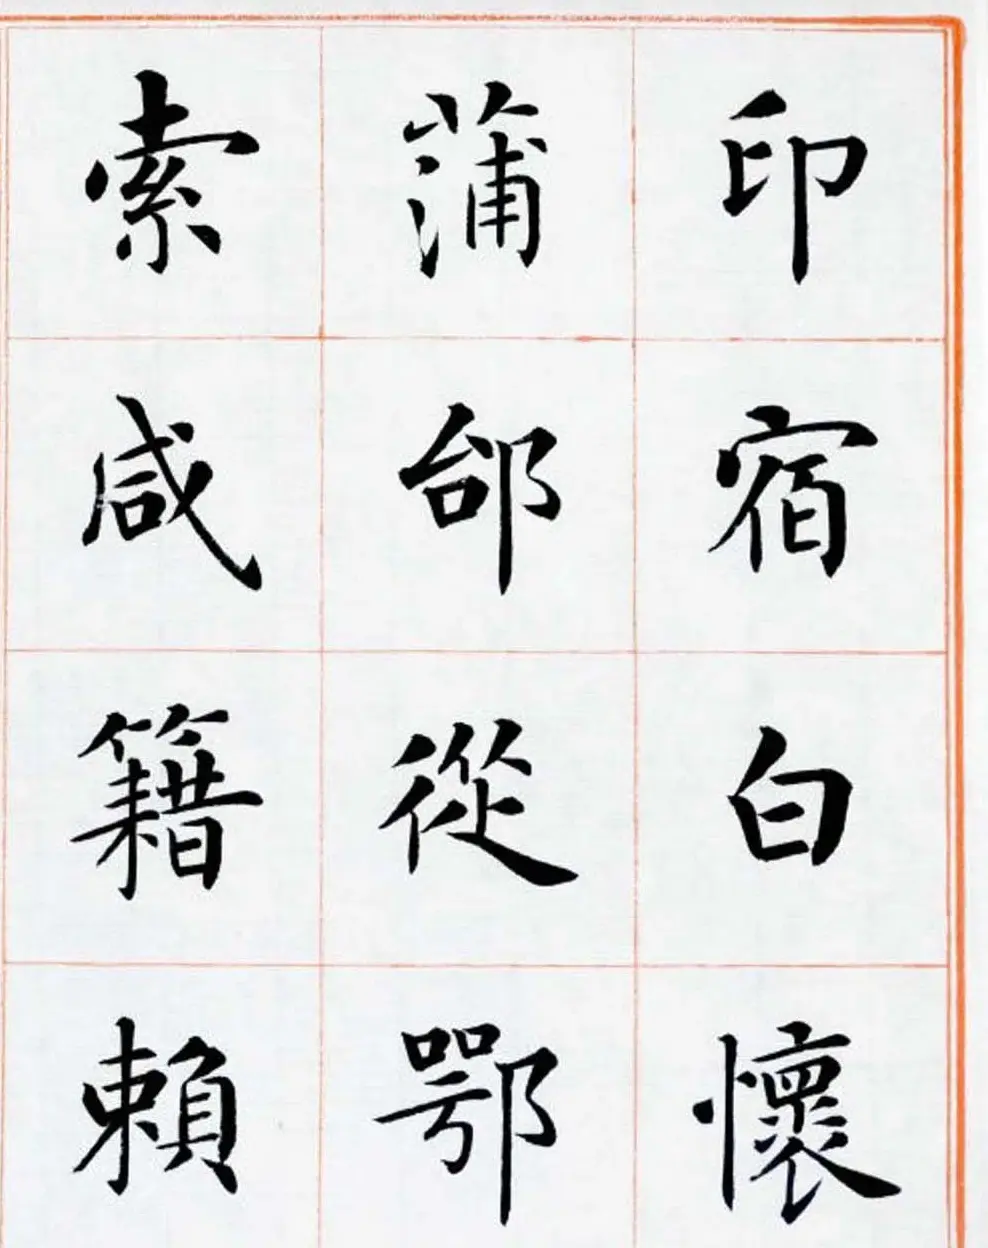 印宿白懷
蒲邰從鄂
索咸籍賴